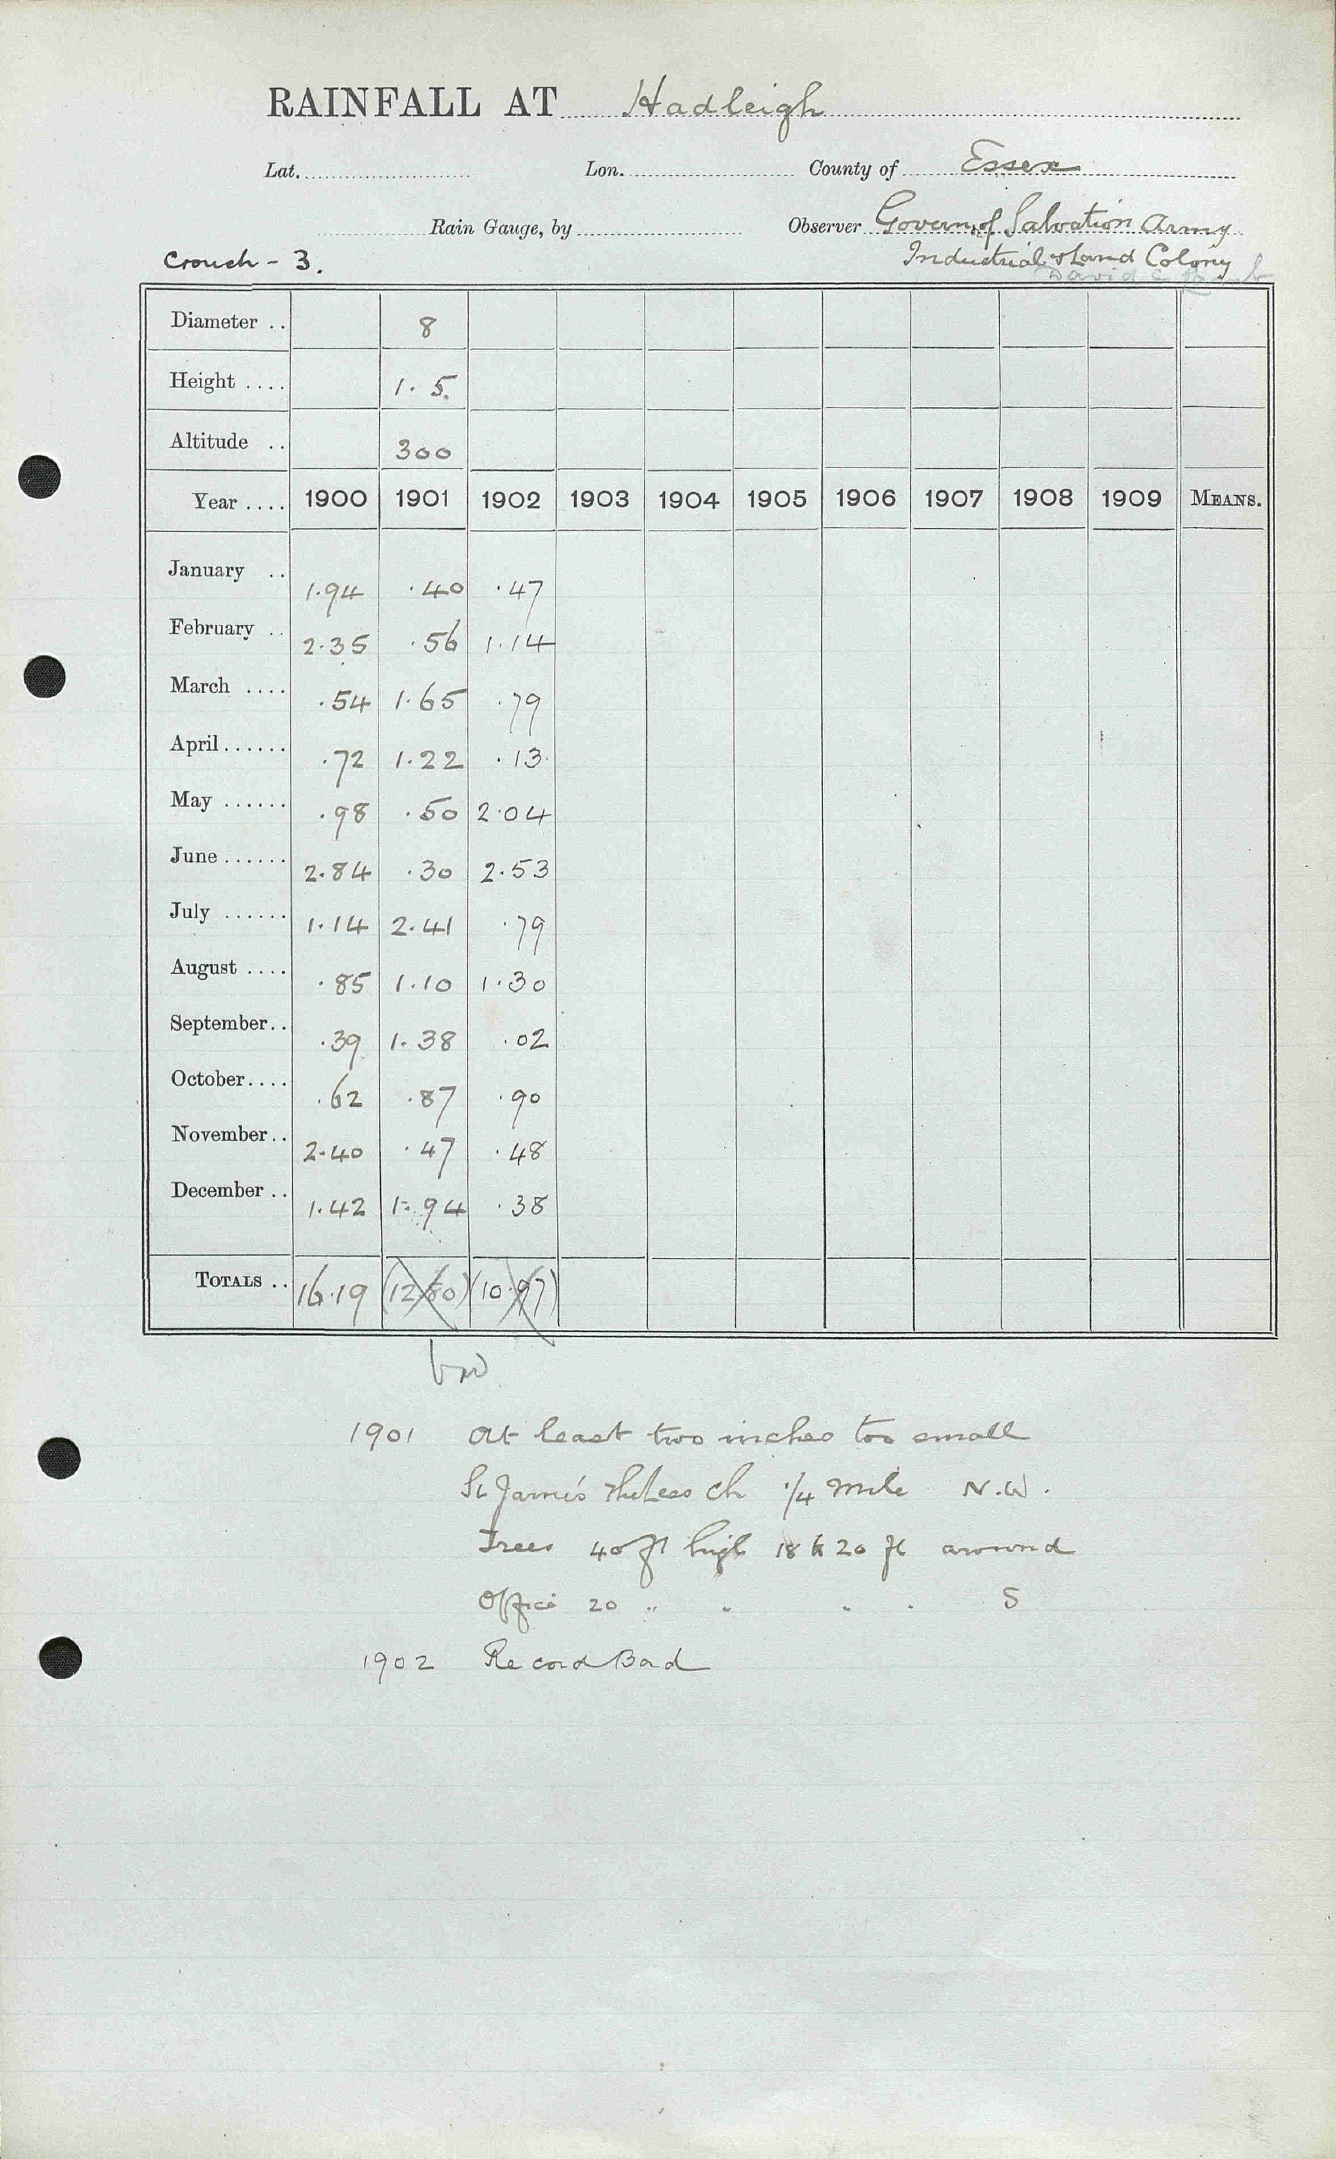 RAINFALL AT Hadleigh
Lat. Lon. County of Essex
Rain Gauge, by Observer Govern. of Salvation Army
Crouch - 3. Industrial & Land Colony
David C
Diameter .. 8
Height .... 1.5
Altitude .. 300
Year .... 1900 1901 1902 1903 1904 1905 1906 1907 1908 1909 MEANS.
January .. 1.94 .40 .47
February .. 2.35 .56 1.14
March .... .54 1.65 .79
April ...... .72 1.22 .13
May ...... .98 .50 2.04
June ...... 2.84 .30 2.53
July ...... 1.14 2.41 .79
August .... .85 1.10 1.30
September .. .39 1.38 .02
October .... .62 .87 .90
November .. 2.40 .47 .48
December .. 1.42 1.94 .38
TOTALS .. 16.19 (12.80) (10.97)
1901 At least two inches too small
St James the Less Ch 1/4 mile N.W.
Trees 40 ft high 18 to 20 ft around
Office 20 " " " " S
1902 Record Bad